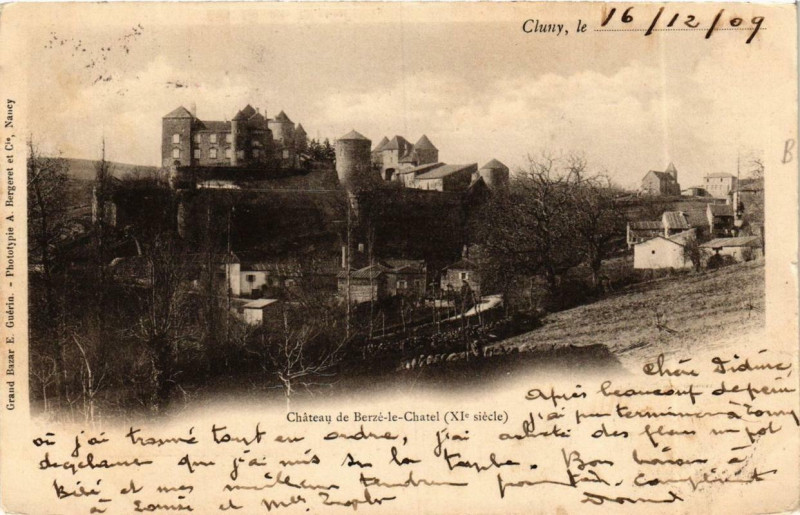 Cluny, le 16/12/09
Grand Bazar E. Guérin. - Phototypie A. Bergeret et Cie, Nancy
B
Château de Berzé-le-Chatel (XIe siècle)
Chère Didine,
Après beaucoup de peine
j'ai pu terminer à
où j'ai trouvé tout en ordre, j'ai acheté des fleurs un pot
que j'ai mis sur la table. Bon baiser à
Bébé et mes meilleures tendresses pour toi. Compliment
à Louise et Mlle